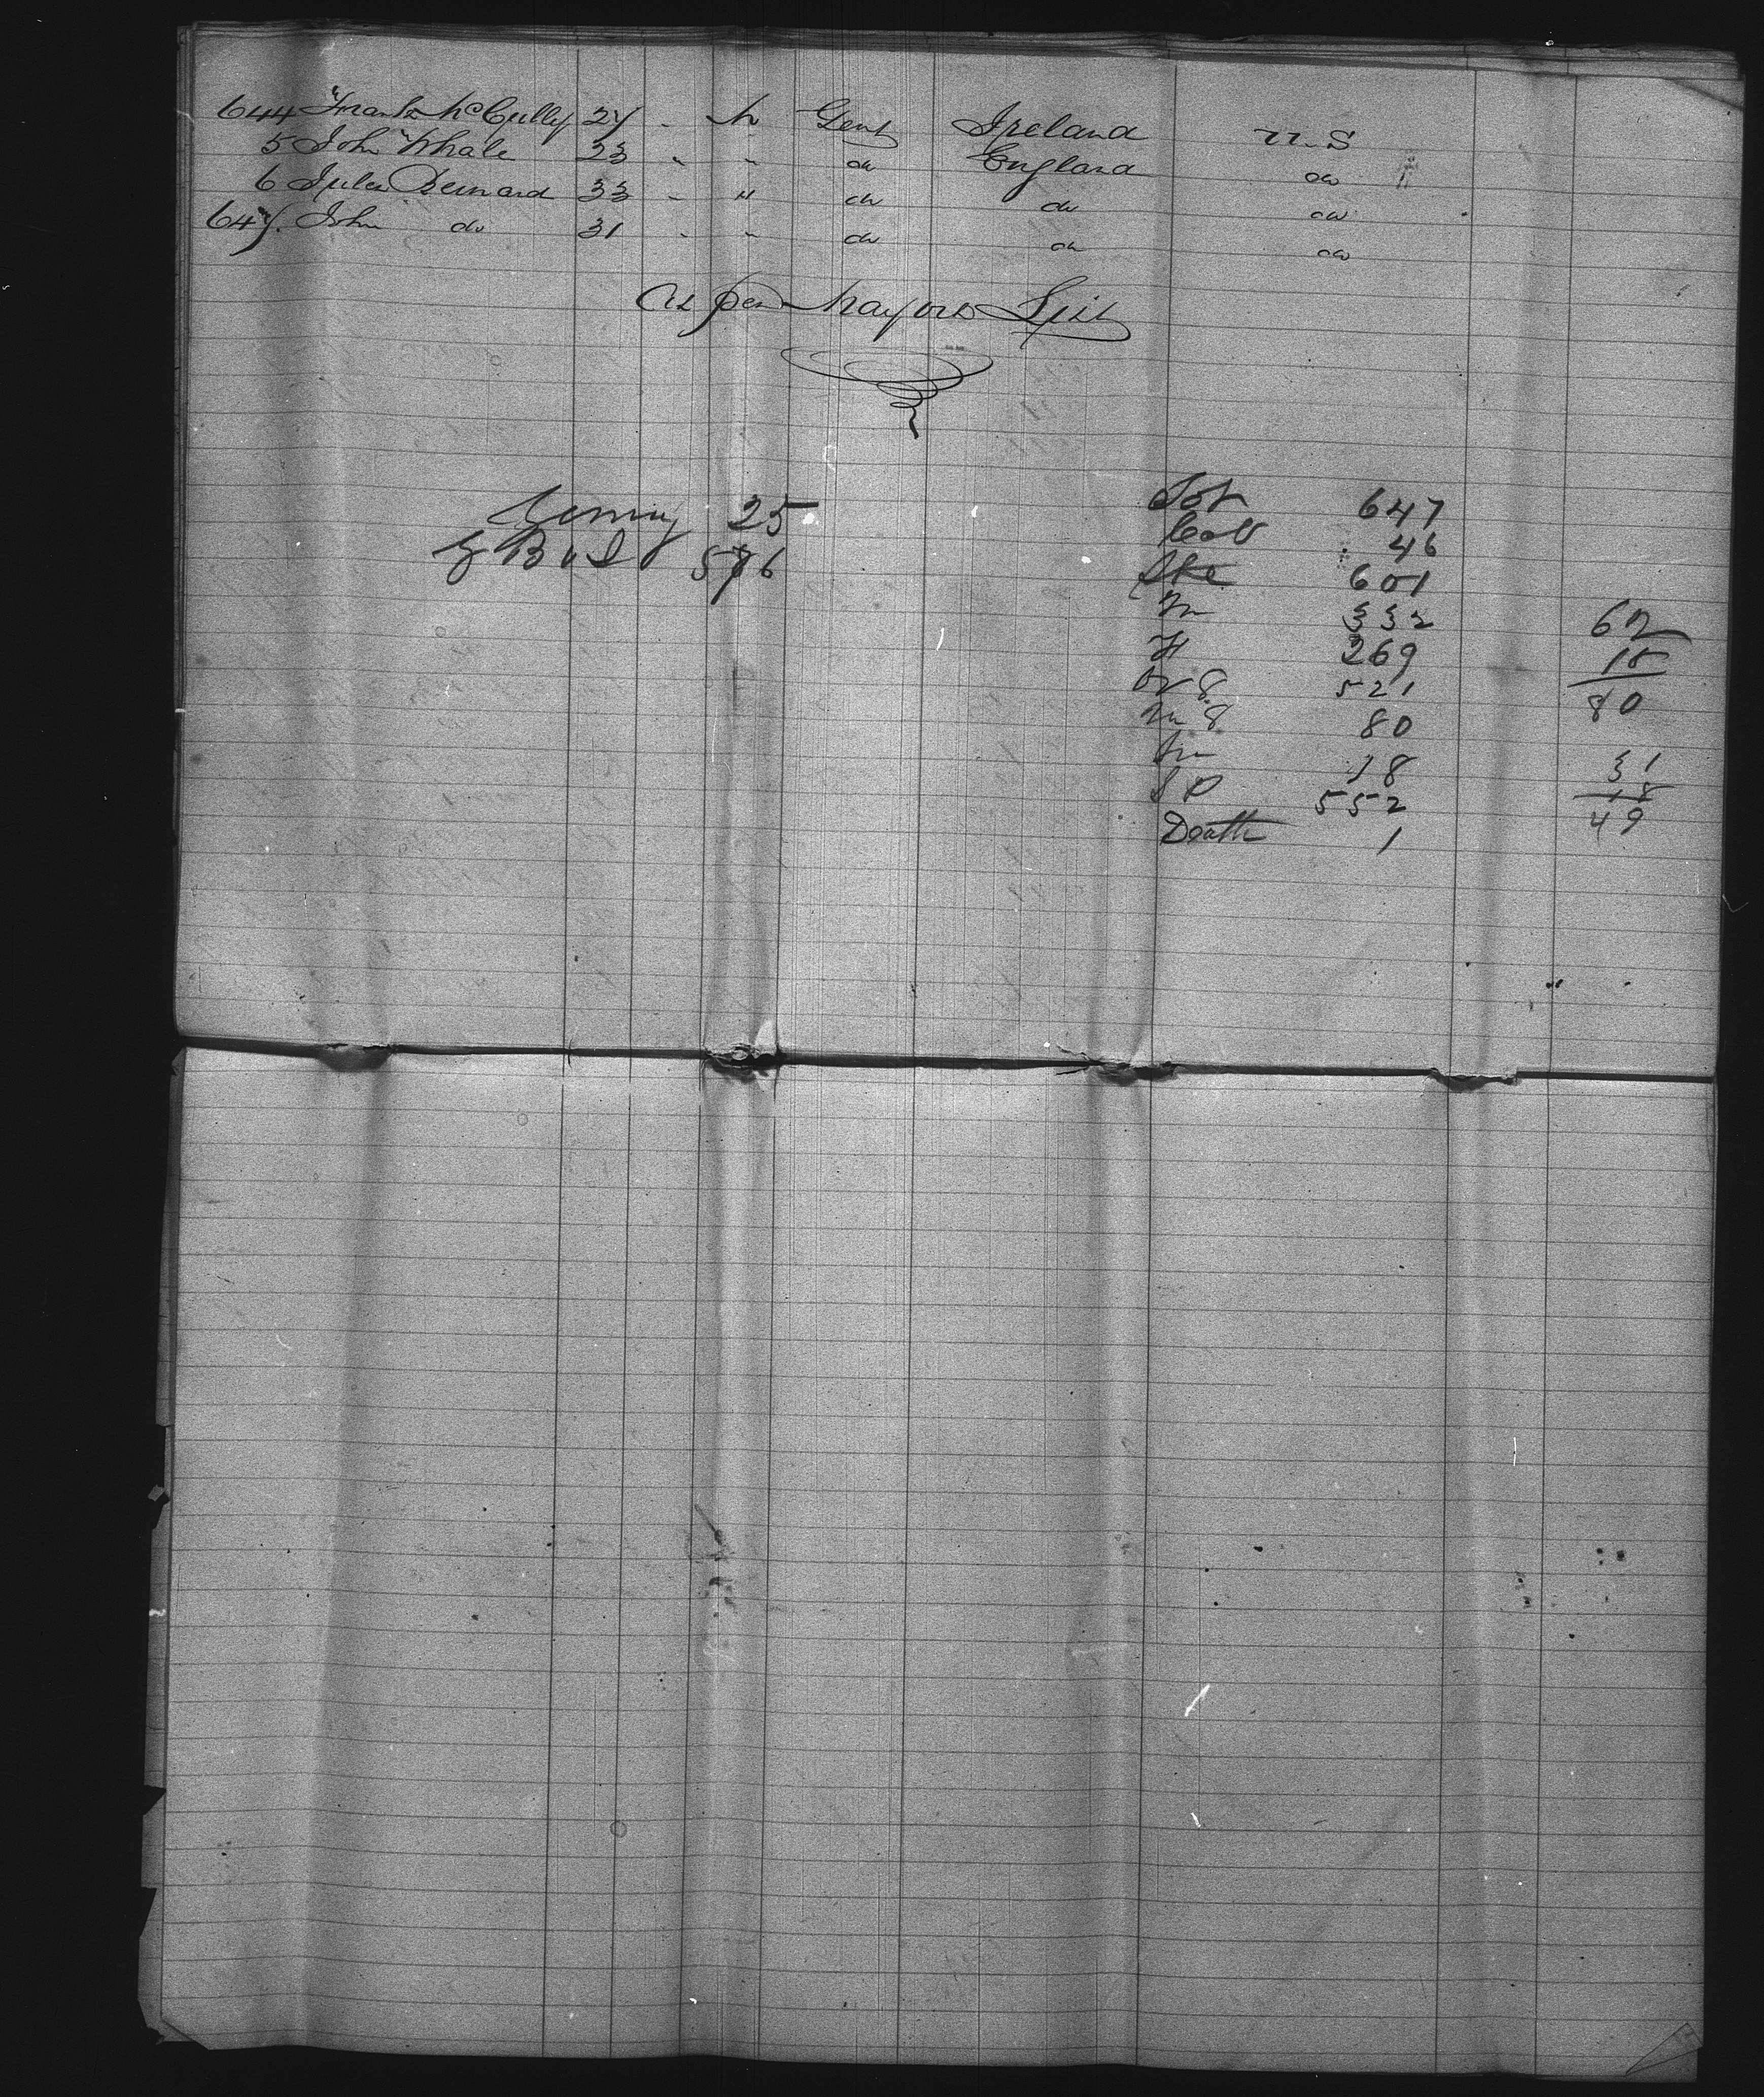 644 Frank McCully 27 - M Gent Ireland U.S
5 John Whale 23 " " do England do
6 Jules Bernard 33 - " do do do
647. John do 31 - " do do do
As per Mayors List
Germany 25
G B & I 576
Tot 647
Cab 46
Ste 601
M 332
F 269
Ov 8 521
Un 8 80
Inf 18
S P 552
Death 1
62
18
80
31
18
49